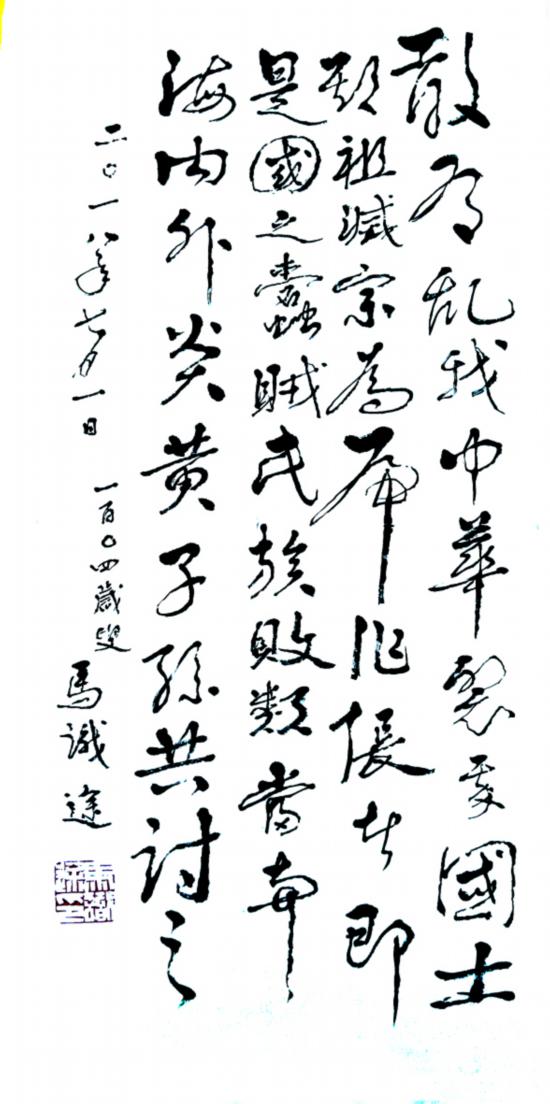 敢有乱我中華裂國土
欺祖滅宗為虎作倀者即
是國之蠹賊民族敗類當與
海内外炎黄子孫共討之
二〇一八年七月一日 一百〇四歲叟 馬識途
馬識途印